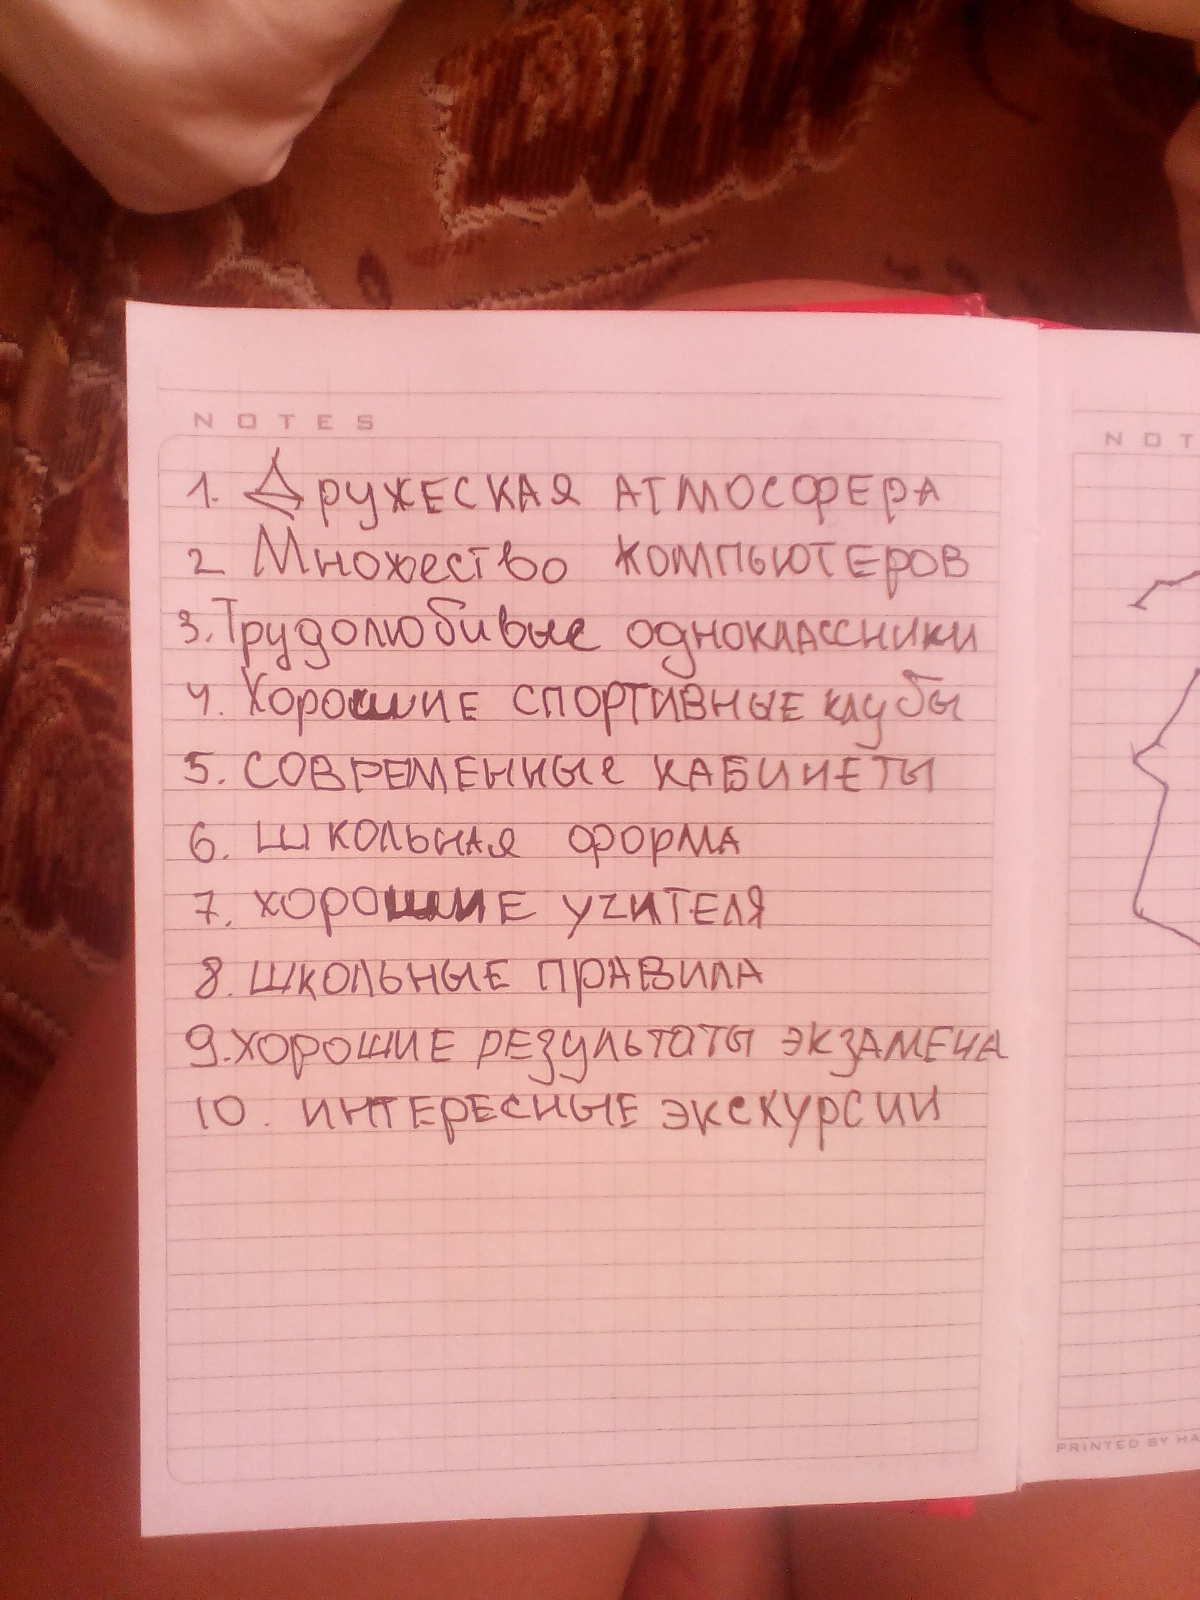 NOTES
1. Дружеская атмосфера
2 Множество компьютеров
3. Трудолюбивые одноклассники
4. Хорошие спортивные клубы
5. Современные кабинеты
6. Школьная форма
7. Хорошие учителя
8. Школьные правила
9. Хорошие результаты экзамена
10. Интересные экскурсии
NOT
PRINTED BY HA